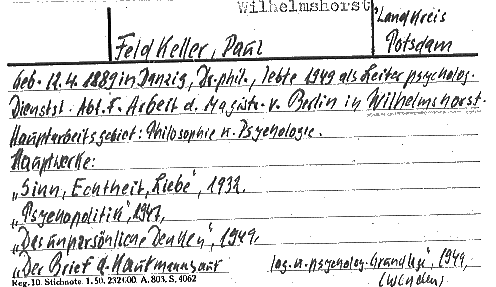 Wilhelmshorst
Landkreis
Potsdam
Feldkeller, Paul
Geb. 12.4.1889 in Danzig, Dr. phil., lebte 1949 als Leiter psycholog.
Dienstst. Abt. F. Arbeit d. Magistr. v. Berlin in Wilhelmshorst.
Hauptarbeitsgebiet: Philosophie u. Psychologie.
Hauptwerke:
„Sinn, Echtheit, Liebe", 1932.
„Psychopolitik", 1947,
„Das unpersönliche Denken", 1949,
„Der Brief a. log. u. psycholog. Grundlage", 1949,
(München)
Reg. 10. Stichnote. 1. 50. 232400. A. 803. S. 4062